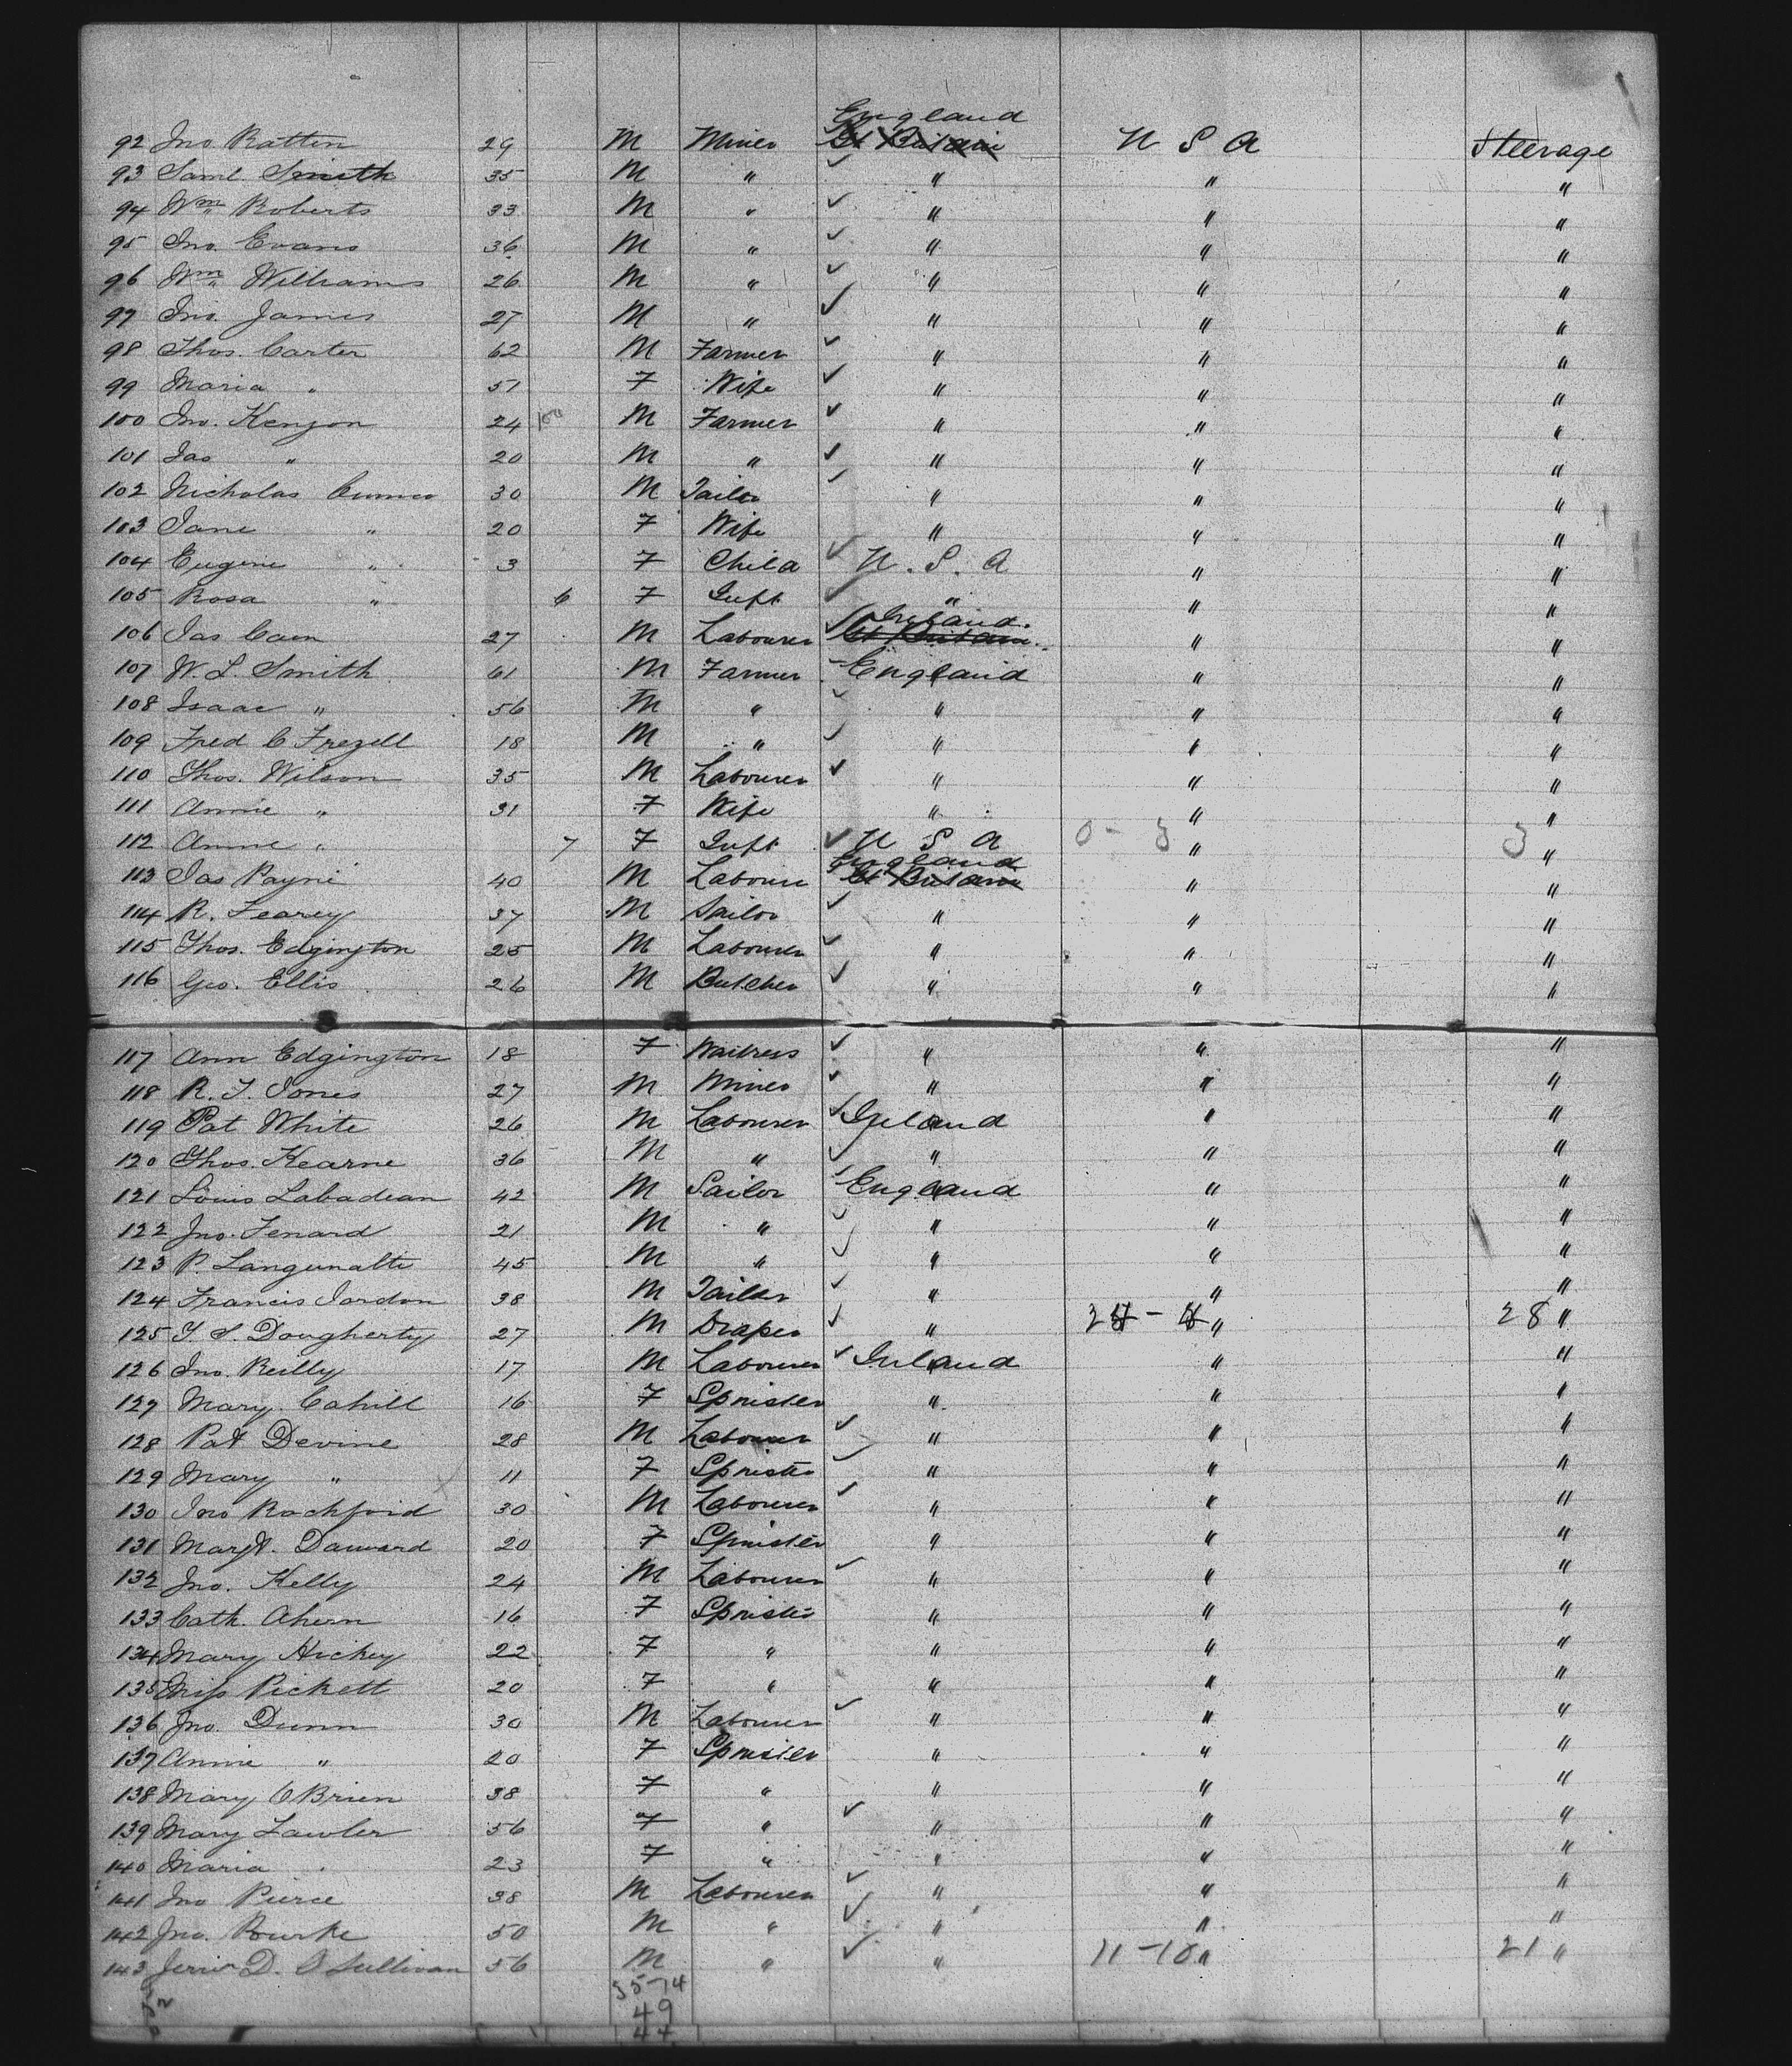 England
92 Jno Ratten 29 M Miner Gt Britain U S A Steerage
93 Saml. Smith 35 M " " " "
94 Wm Roberts 33 M " " " "
95 Jno. Evans 36 M " " " "
96 Wm Williams 26 M " " " "
97 Jno. James 27 M " " " "
98 Thos. Carter 62 M Farmer " " "
99 Maria " 51 F Wife " " "
100 Jno. Kenyon 24 M Farmer " " "
101 Jas " 20 M " " " "
102 Nicholas 30 M Tailor " " "
103 Jane " 20 F Wife " " "
104 Eugene " 3 F Child U. S. A " "
105 Rosa " 6 F Inft " " "
Ireland.
106 Jas Cain 27 M Labourer Gt Britain " "
107 W. L. Smith 61 M Farmer England " "
108 Isaac " 56 M " " " "
109 Fred C Frezell 18 M " " " "
110 Thos. Wilson 35 M Labourer " " "
111 Annie " 31 F Wife " " "
112 Annie " 7 F Inft U S A 0-3 " 3 "
England
113 Jas Payne 40 M Labourer Gt Britain " "
114 R. Fearey 37 M Sailor " " "
115 Thos. Edgington 25 M Labourer " " "
116 Geo. Ellis 26 M Butcher " " "
117 Ann Edgington 18 F Waitress " " "
118 R. T. Jones 27 M Miner " " "
119 Pat White 26 M Labourer Ireland " "
120 Thos. Kearne 36 M " " " "
121 Louis Labadean 42 M Sailor England " "
122 Jno. Fenard 21 M " " " "
123 P. 45 M " " " "
124 Francis Jordon 38 M Tailor " " "
125 T. S. Dougherty 27 M Draper " " 28 "
126 Jno. Reilly 17 M Labourer Ireland " "
127 Mary Cahill 16 F Spinster " " "
128 Pat Devine 28 M Labourer " " "
129 Mary " 11 F Spinster " " "
130 Jno Rochford 30 M Labourer " " "
131 Margt. Dauvard 20 F Spinster " " "
132 Jno. Kelly 24 M Labourer " " "
133 Cath. Ahern 16 F Spinster " " "
134 Mary Hickey 22 F " " " "
135 Miss Pickett 20 F " " " "
136 Jno. Dunn 30 M Labourer " " "
137 Annie " 20 F Spinster " " "
138 Mary O'Brien 38 F " " " "
139 Mary Lawler 56 F " " " "
140 Maria " 23 F " " " "
141 Jno Pierce 38 M Labourer " " "
142 Jno. Rourke 50 M " " " "
143 D. O Sullivan 56 M " " 11-10 " 21 "
35-14
49
44